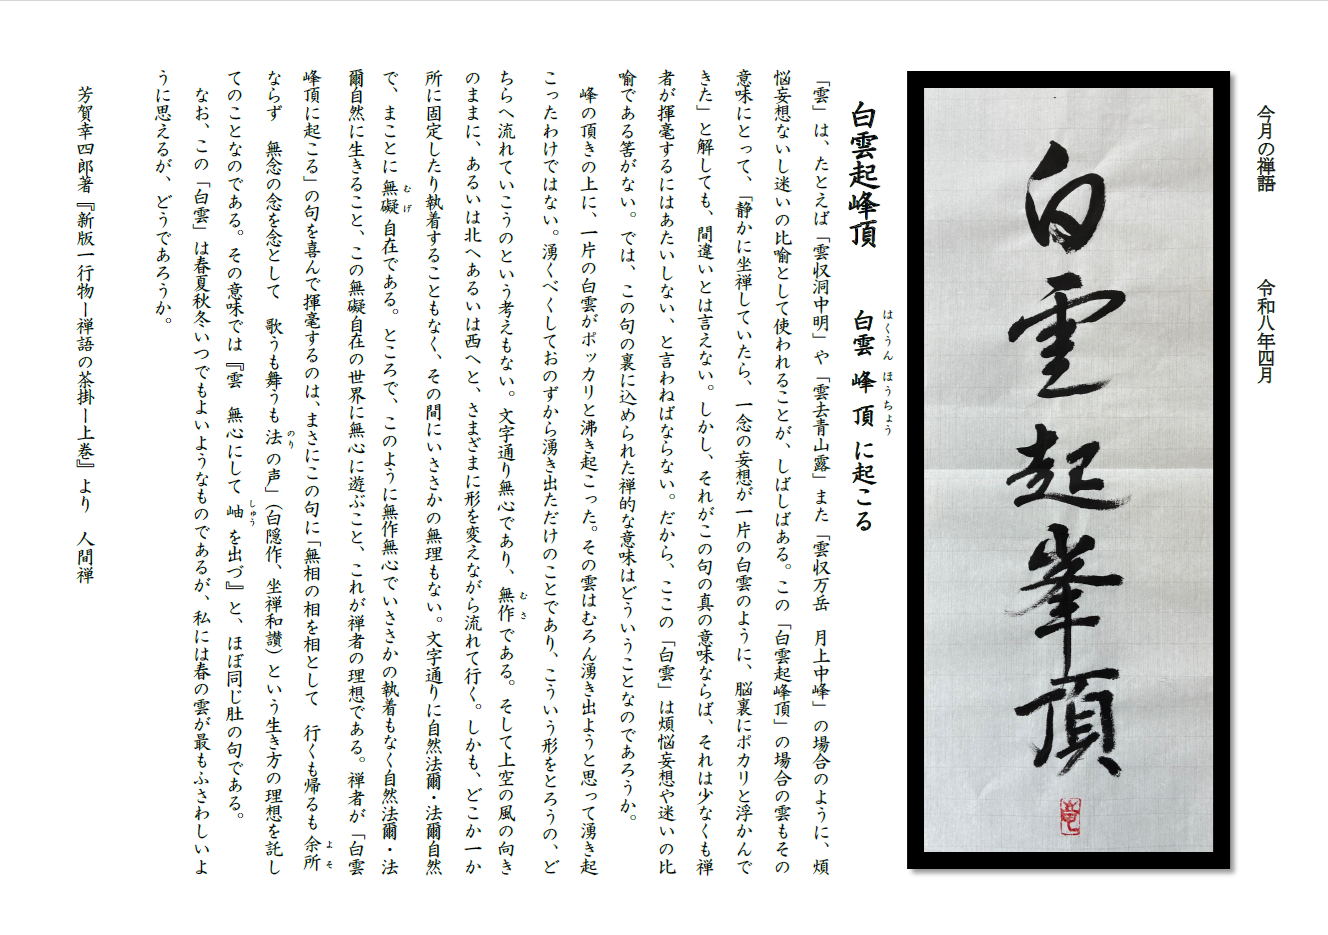 今月の禅語　令和八年四月
白雲起峯頂
白雲起峰頂　白雲峰頂に起こる
はくうん ほうちょう
「雲」は、たとえば「雲収洞中明」や「雲去青山露」また「雲収万岳　月上中峰」の場合のように、煩
悩妄想ないし迷いの比喩として使われることが、しばしばある。この「白雲起峰頂」の場合の雲もその
意味にとって、「静かに坐禅していたら、一念の妄想が一片の白雲のように、脳裏にポカリと浮かんで
きた」と解しても、間違いとは言えない。しかし、それがこの句の真の意味ならば、それは少なくも禅
者が揮毫するにはあたいしない、と言わねばならない。だから、ここの「白雲」は煩悩妄想や迷いの比
喩である筈がない。では、この句の裏に込められた禅的な意味はどういうことなのであろうか。
峰の頂きの上に、一片の白雲がポッカリと沸き起こった。その雲はむろん湧き出ようと思って湧き起
こったわけではない。湧くべくしておのずから湧き出ただけのことであり、こういう形をとろうの、ど
ちらへ流れていこうのという考えもない。文字通り無心であり、無作である。そして上空の風の向き
むさ
のままに、あるいは北へあるいは西へと、さまざまに形を変えながら流れて行く。しかも、どこか一か
所に固定したり執着することもなく、その間にいささかの無理もない。文字通りに自然法爾・法爾自然
で、まことに無礙自在である。ところで、このように無作無心でいささかの執着もなく自然法爾・法
むげ
爾自然に生きること、この無礙自在の世界に無心に遊ぶこと、これが禅者の理想である。禅者が「白雲
峰頂に起こる」の句を喜んで揮毫するのは、まさにこの句に「無相の相を相として　行くも帰るも余所
よそ
ならず　無念の念を念として　歌うも舞うも法の声」（白隠作、坐禅和讃）という生き方の理想を託し
のり
てのことなのである。その意味では『雲　無心にして岫を出づ』と、ほぼ同じ肚の句である。
しゅう
なお、この「白雲」は春夏秋冬いつでもよいようなものであるが、私には春の雲が最もふさわしいよ
うに思えるが、どうであろうか。
芳賀幸四郎著『新版一行物ー禅語の茶掛ー上巻』より　人間禅